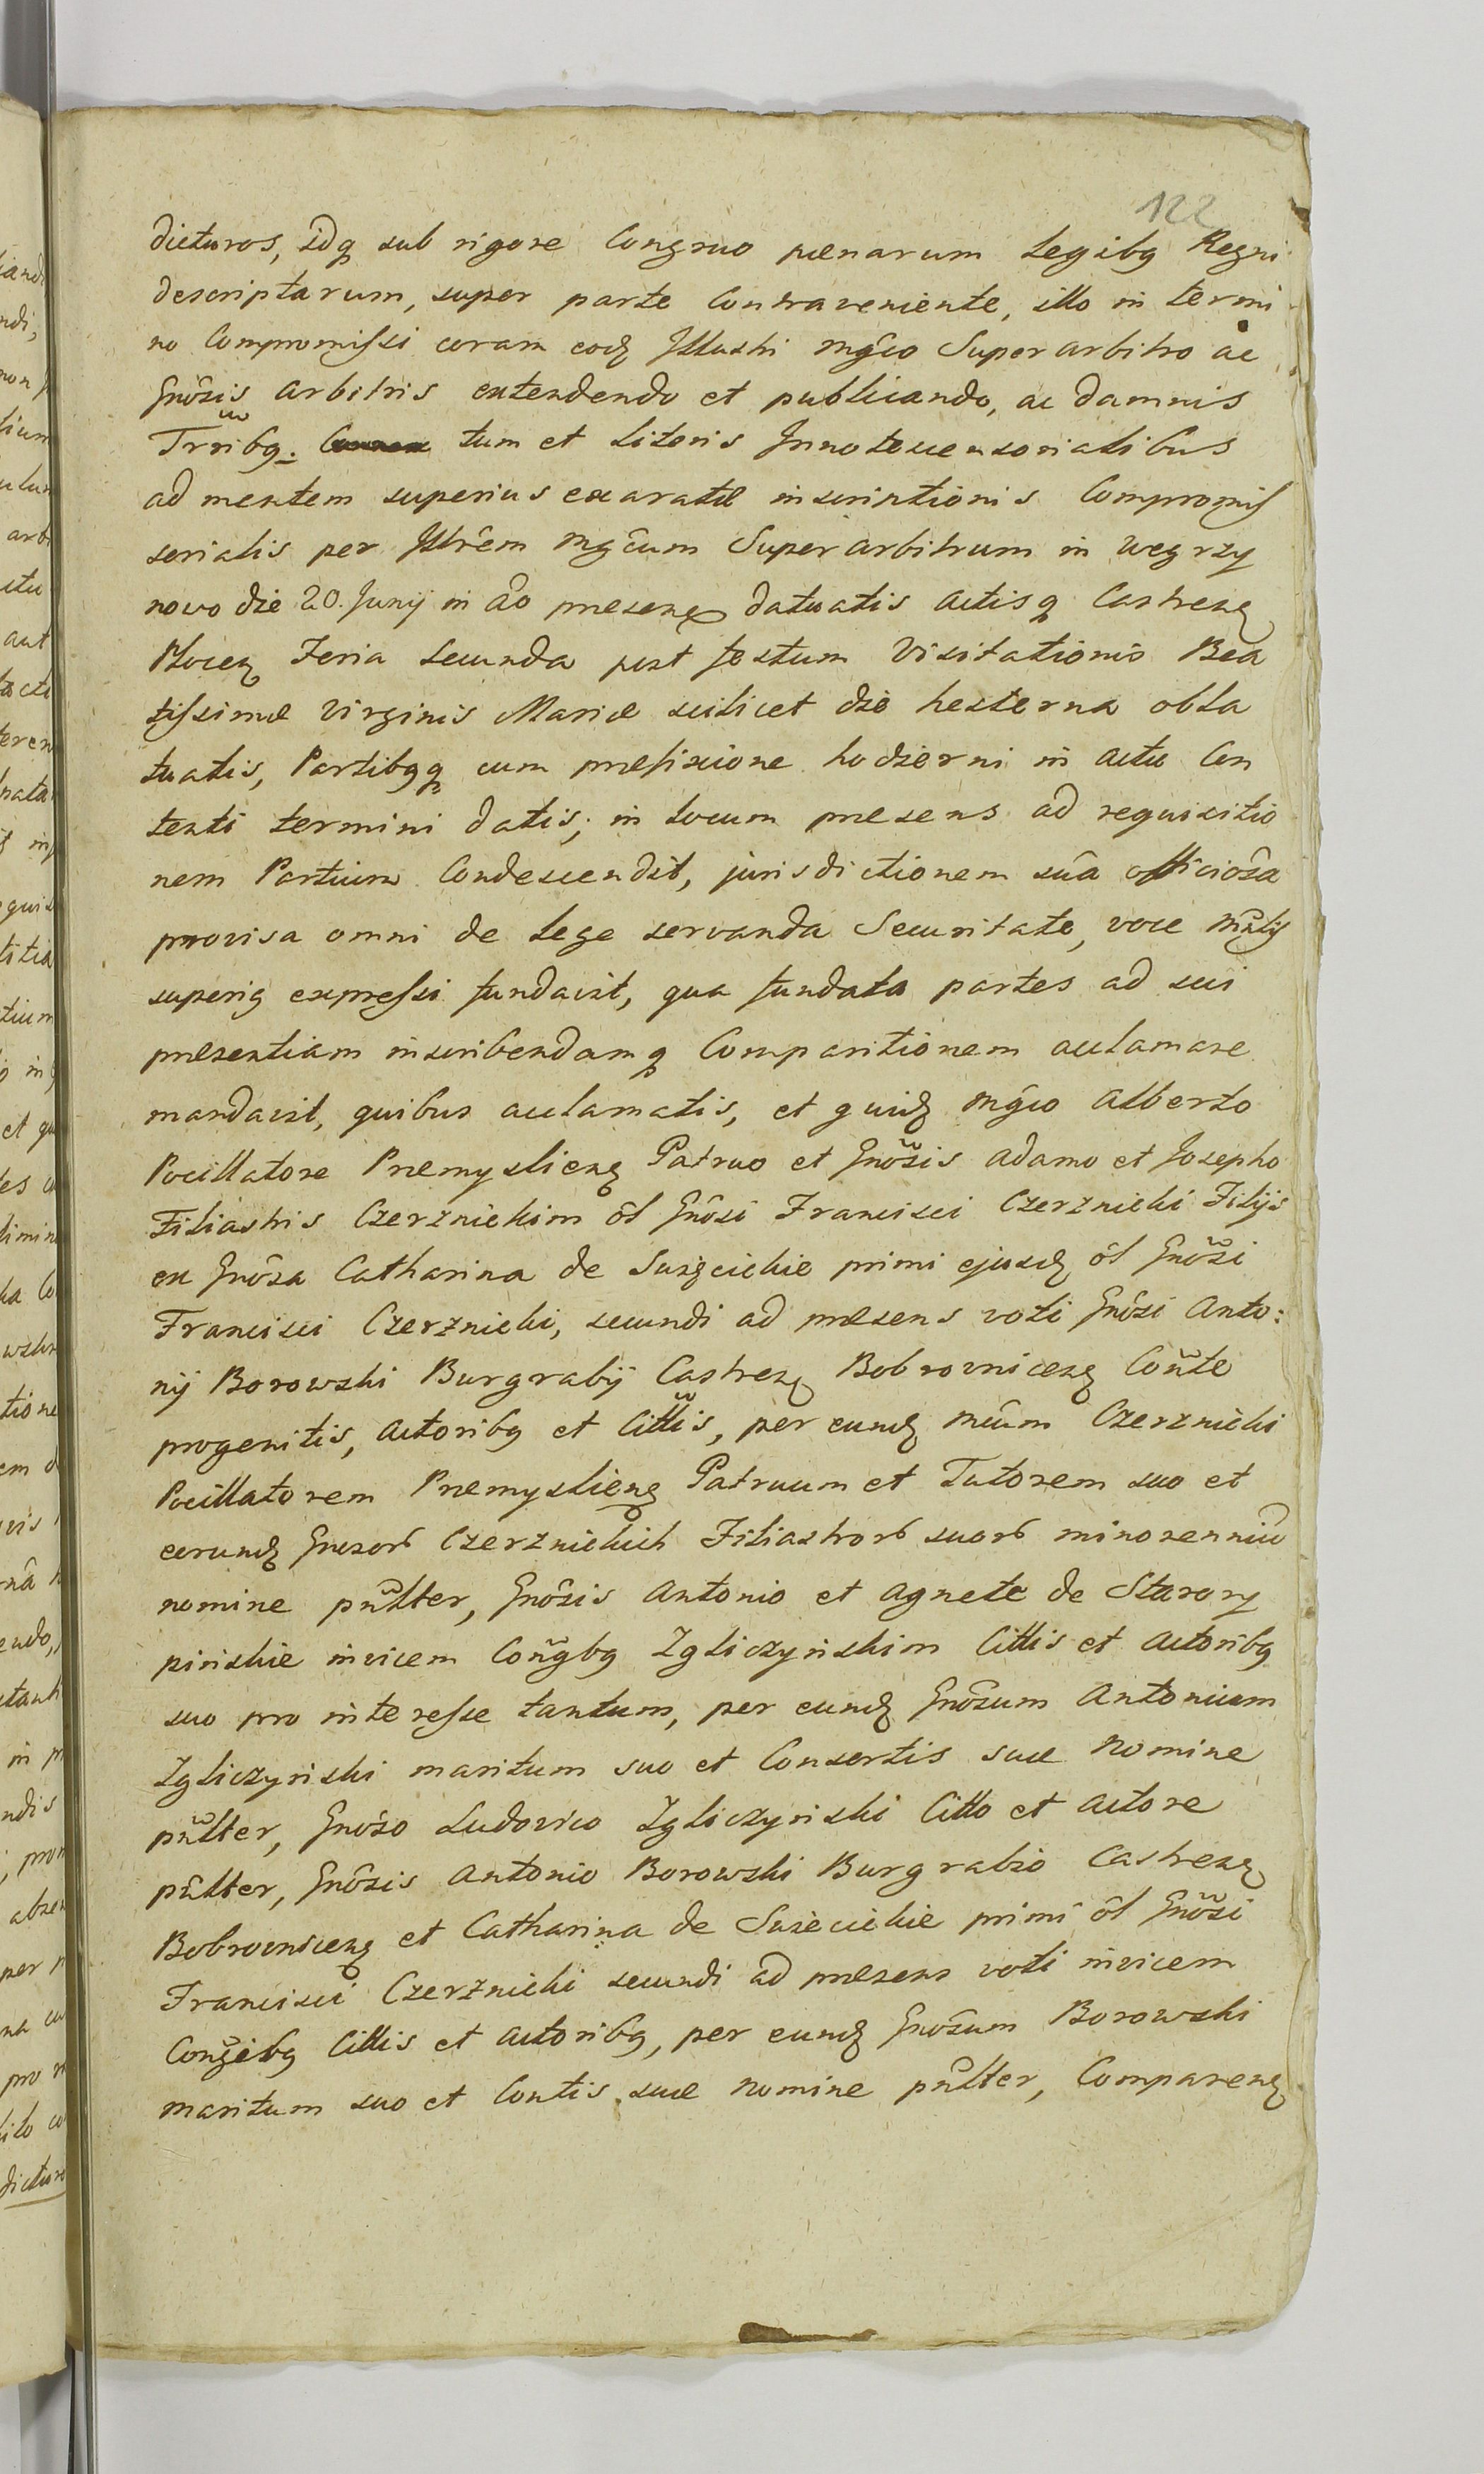 122
dicturos, idq sub rigore Congruo pœnarum Legibq Regni
descriptarum, super parte Contraveniente, illo in termi
no Compromissi coram eod Illustri Mgco Superarbitro ac
Gnosis Arbitris extendendo et publicando, ac Damnis
Trribq. tum et Literis Innotescensorialibus
ad mentem superius exaratæ inscriptionis Compromis
sorialis per Illrem Mgcum Superarbitrum in Wegrzy
nowo die 20. Junij in Ao præsenq datuatis Actisq Castrenq
Plocenq Feria Secunda post festum Visitationis Bea
tissimæ Virginis Mariæ scilicet die hesterna obla
tuatis, Partibqq cum præfixione hodierni in Actu Con
tenti termini datis; in Locum præsens ad requisitio
nem Partium Condescendit, jurisdictionem suâ officiosâ
provisa omni de Lege servanda Securitate, voce Mnlis
superiq expressi fundavit, qua fundata partes ad sui
præsentiam inscribendamq Comparitionem acclamare
mandavit, quibus acclamatis, et quid Mgco Alberto
Pocillatore Præmyslienq Patruo et Gnosis Adamo et Josepho
Filiastris Czerznickim ol Gnosi Francisci Czerznicki Filijs
ex Gnosa Catharina de Suzęcickie primi ejusd ol Gnosi
Francisci Czerznicki, secundi ad præsens voti Gnosi Anto:
nij Borowski Burgrabij Castrenq Bobrovnicenq Conte
progenitis, Actoribq et Cittis, per eund Mcum Czerznicki
Pocillatorem Præmyslienq Patruum et Tutorem suo et
eorund Gnosorb Czerznickich Filiastrorb suorb minorenniu
nomine pnlter, Gnosis Antonio et Agnete de Starory
pinskie invicem Congbq Zgliczynskim Cittis et Actoribq
suo pro interesse tantum, per eund Gnosum Antonium
Zgliczynski maritum suo et Consortis suæ nomine
pnlter, Gnoso Ludovico Zgliczynski Citto et Actore
pnlter, Gnosis Antonio Borowski Burgrabio Castrenq
Bobrovnicenq et Catharina de Suzecickie primi ol Gnosi
Francisci Czerznicki secundi ad præsens voti invicem
Congibq Cittis et Actoribq, per eund Gnosum Borowski
maritum suo et Contis suæ nomine pnlter, Comparenq